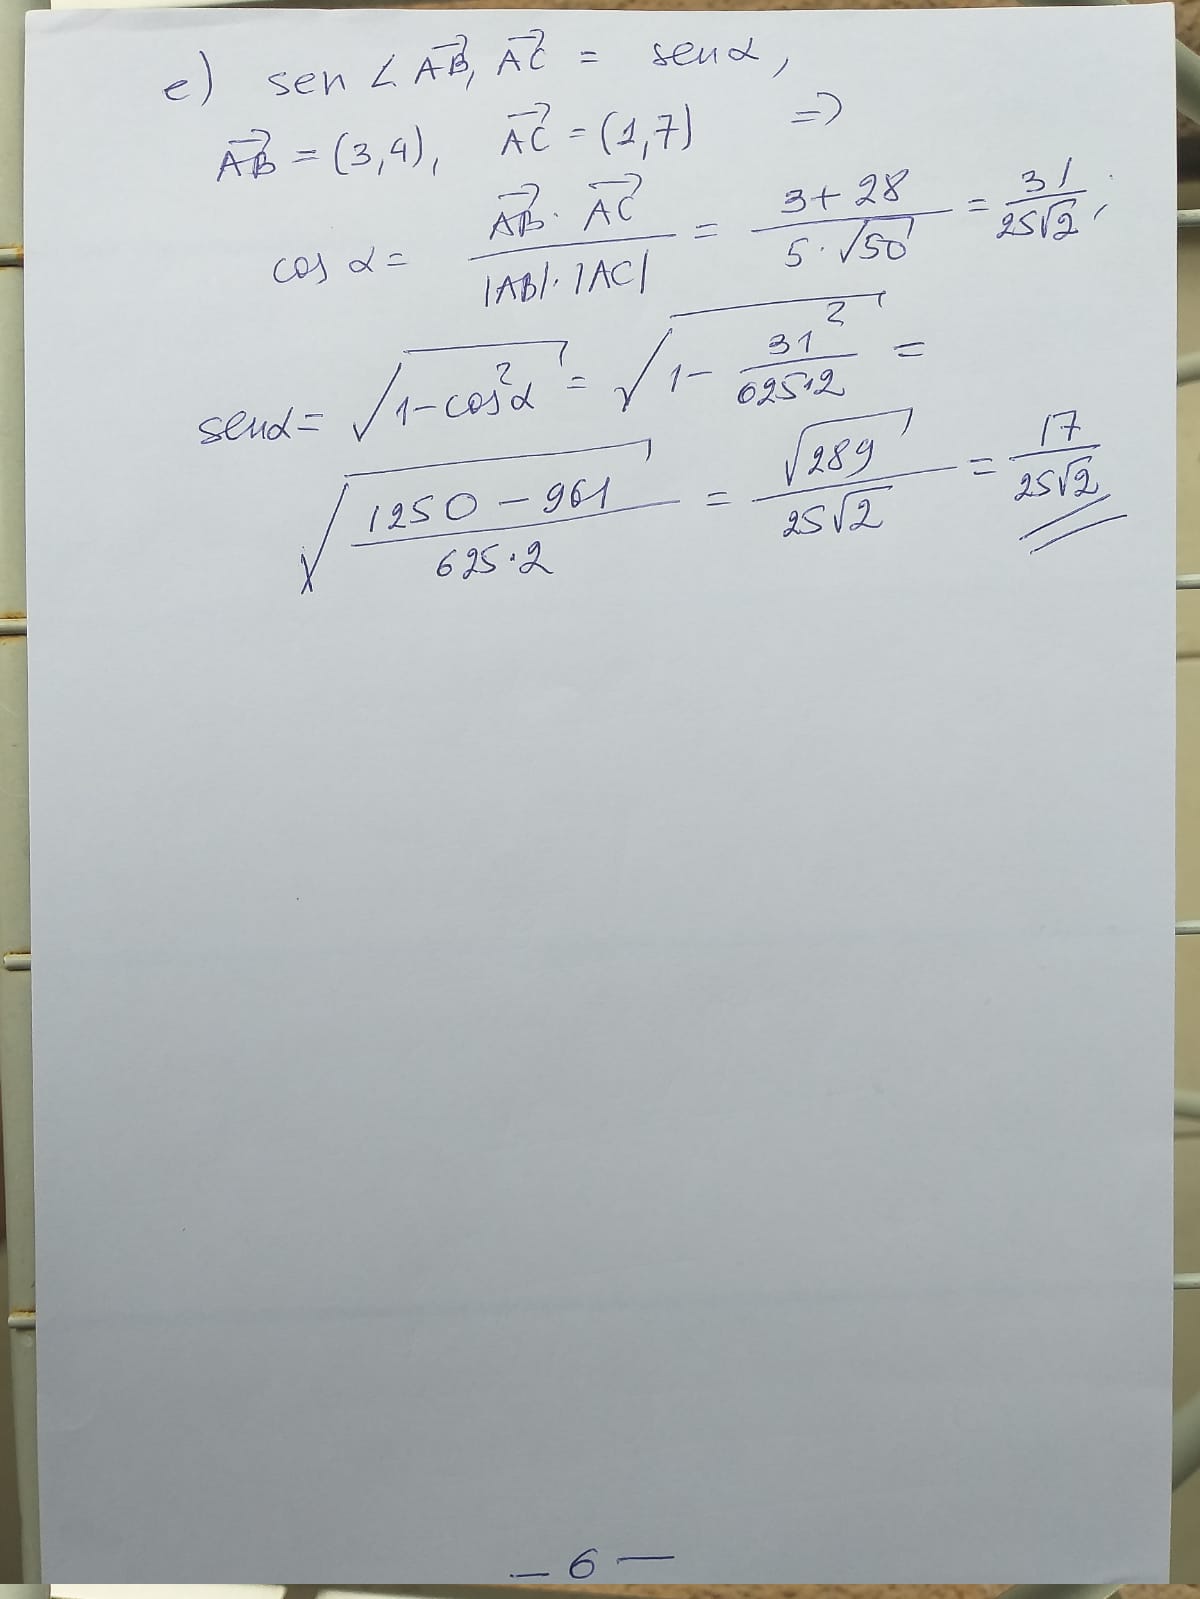 e) sen ∠ AB⃗, AC⃗ = sen α,
AB⃗ = (3,4), AC⃗ = (1,7) ⇒
cos α = (AB⃗ · AC⃗)/(|AB| · |AC|) = (3 + 28)/(5 · √50) = 31/(25√2),
sen α = √(1 - cos² α) = √(1 - 31²/(625·2)) =
√((1250 - 961)/(625·2)) = √289/(25√2) = 17/(25√2)
— 6 —